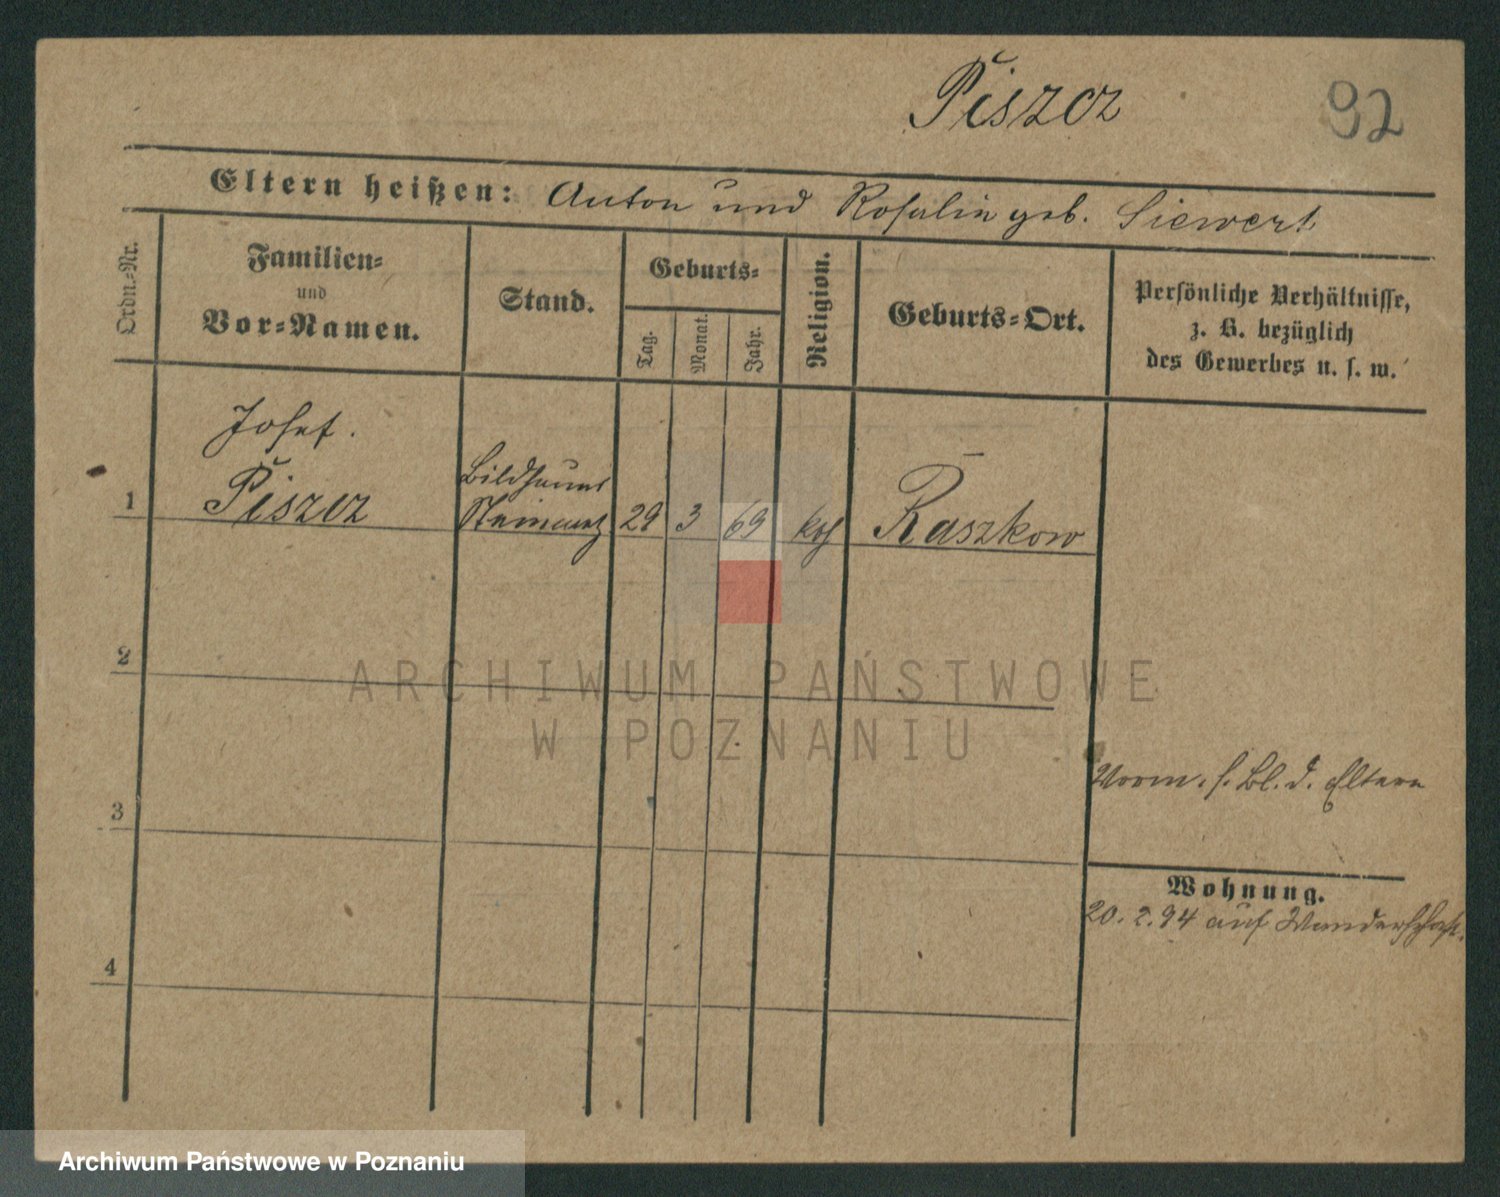 Piszcz 92
Eltern heißen: Anton und Rosalin geb. Siewert
Ordn.-Nr.
Familien-
und
Vor-Namen.
Stand.
Geburts-
Tag.
Monat.
Jahr.
Religion.
Geburts-Ort.
Persönliche Verhältnisse,
z. B. bezüglich
des Gewerbes u. s. w.
Josef.
Bildhauer
1 Piszcz Steinmetz 29 3 69 kth Raszkow
2
ARCHIWUM PAŃSTWOWE
W POZNANIU
Vorm. s. Bl. d. Eltern
3
Wohnung.
20. 2. 94 auf Wanderschaft.
4
Archiwum Państwowe w Poznaniu